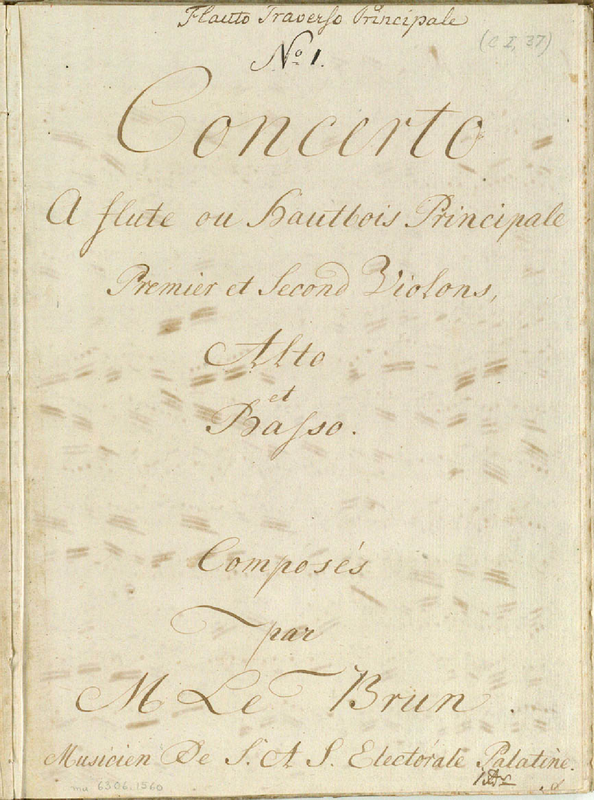 Flauto Traverso Principale
(C I, 37)
No. 1.
Concerto
A flute ou Hautbois Principale
Premier et Second Violons,
Alto
et
Basso.
Composés
par
M Le Brun.
Musicien De S. A S. Electorale Palatine.
mu 6306.1560